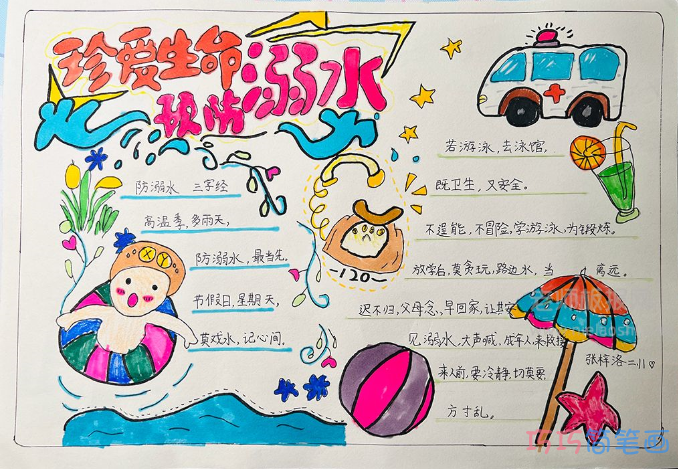 珍爱生命
预防溺水
防溺水 三字经
高温季,多雨天,
防溺水,最当先。
节假日,星期天,
莫戏水,记心间。
XY
120
若游泳,去泳馆,
既卫生,又安全。
不逞能,不冒险,学游泳,为锻炼。
放学后,莫贪玩,路边水,当 离远。
迟不归,父母念,早回家,让其安
见溺水,大声喊,成年人,来救援
来人前,要冷静,切莫要
方寸乱。
张梓洛二11
巧巧简笔画